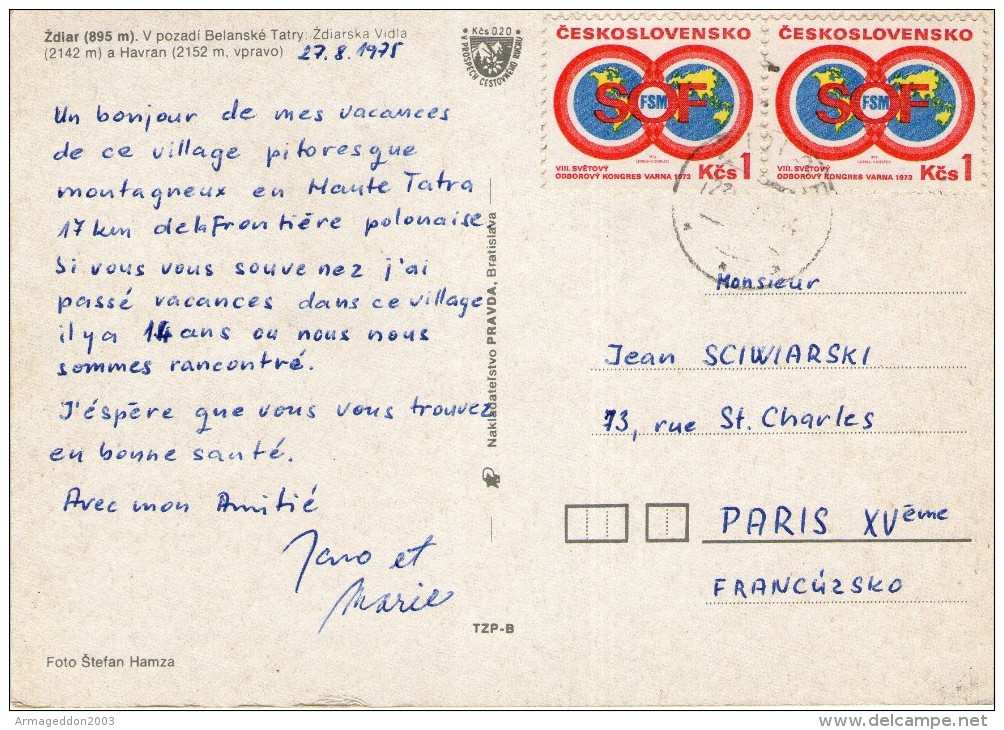 Ždiar (895 m). V pozadí Belanské Tatry: Ždiarska Vidla
(2142 m) a Havran (2152 m, vpravo)
27.8.1975
Un bonjour de mes vacances
de ce village pitoresque
montagneux en Haute Tatra
17 km de la Frontiére polonaise
Si vous vous souvenez j'ai
passé vacances dans ce village
il y a 14 ans ou nous nous
sommes rancontré.
J'éspère que vous vous trouvez
en bonne santé.
Avec mon Amitié
Jano et
Marie
Foto Štefan Hamza
Kčs 0.20
V PROSPECH CESTOVNÉHO RUCHU
Nakladateľstvo PRAVDA, Bratislava
TZP-B
ČESKOSLOVENSKO
SOF
FSM
VIII. SVĚTOVÝ
ODBOROVÝ KONGRES VARNA 1973
Kčs 1
ČESKOSLOVENSKO
SOF
FSM
VIII. SVĚTOVÝ
ODBOROVÝ KONGRES VARNA 1973
Kčs 1
Monsieur
Jean SCIWIARSKI
73, rue St. Charles
PARIS XVéme
FRANCÚZSKO
Armageddon2003
delcampe.net